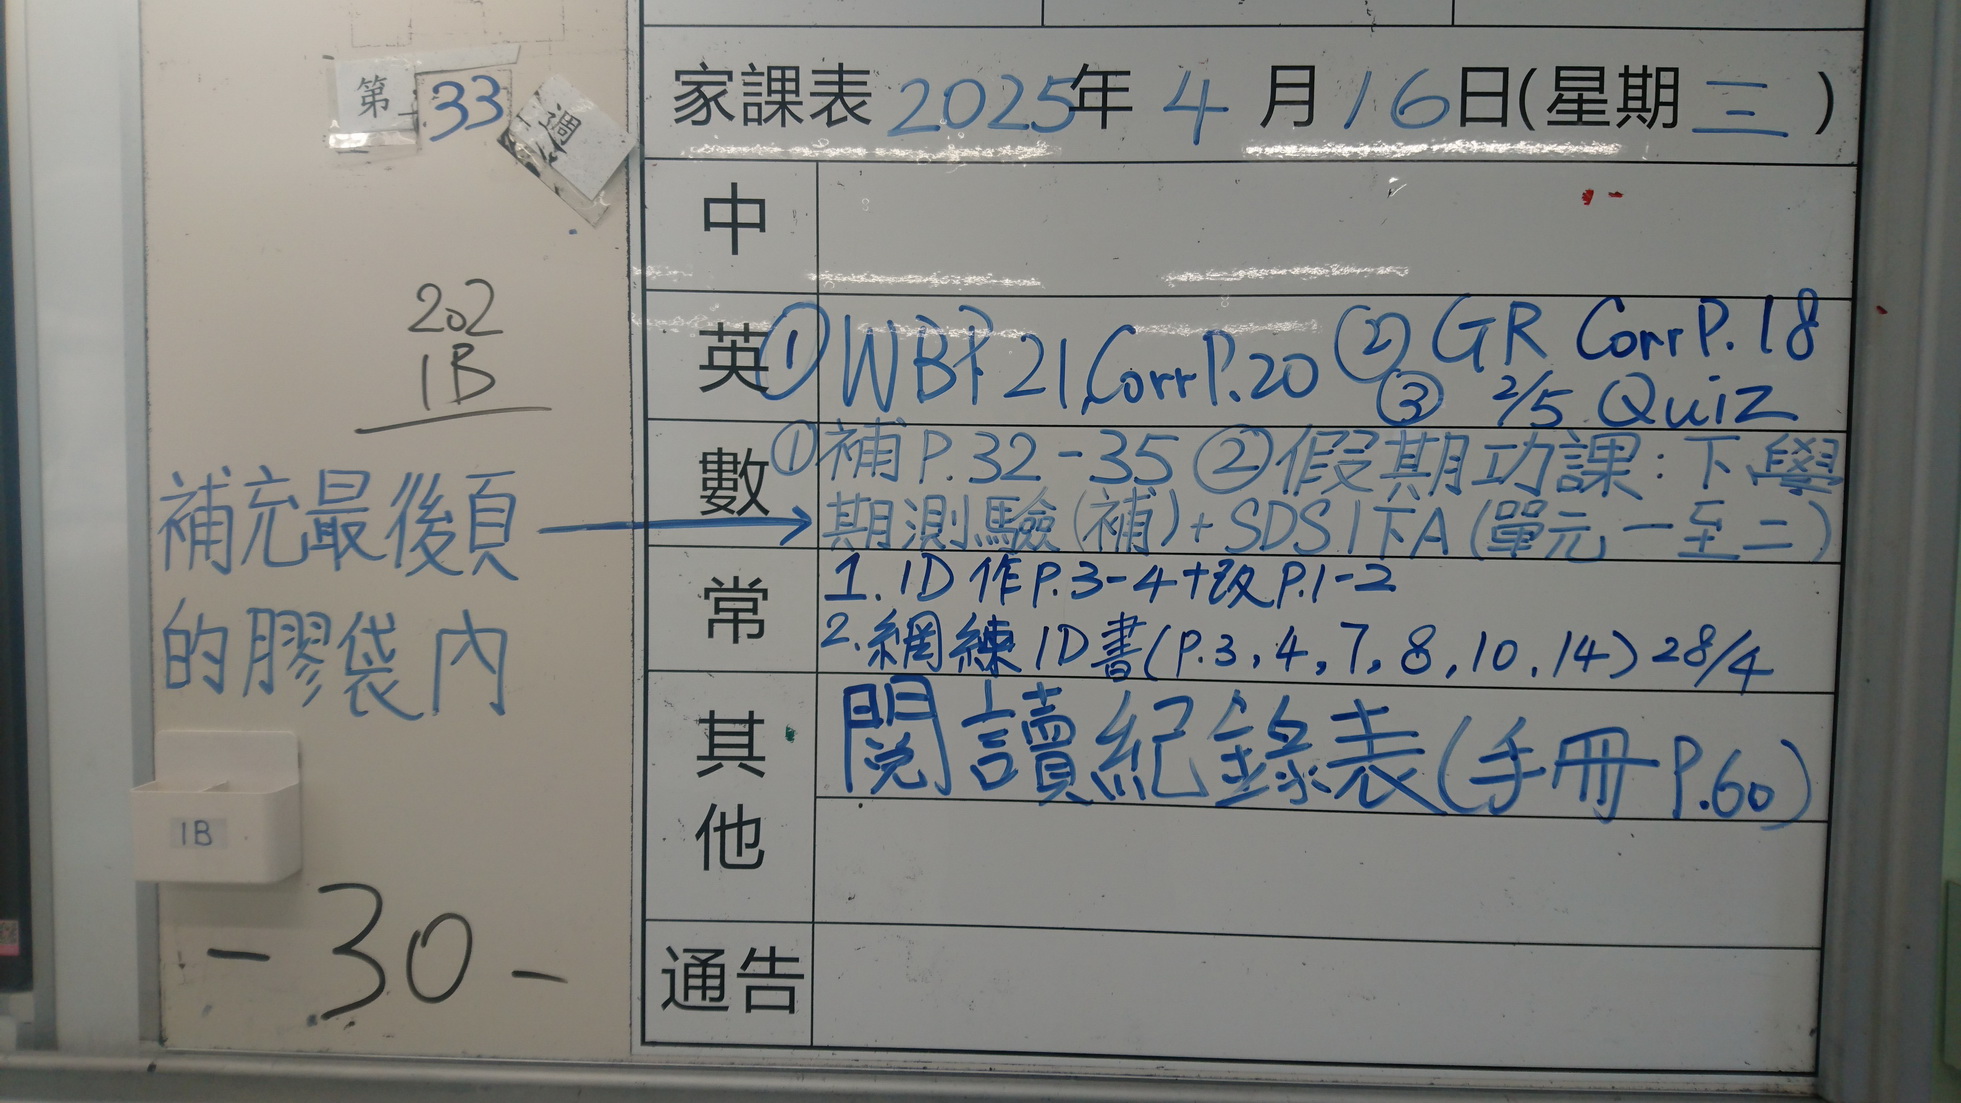 第 33 週
202
1B
補充最後頁
的膠袋內
1B
-30-
家課表 2025年 4 月 16日(星期 三 )
中
英 ① WB P.21, Corr P.20 ② GR Corr P.18
③ 2/5 Quiz
數 ① 補 P.32-35 ② 假期功課:下學
期測驗(補)+SDS1下A(單元一至二)
常 1. 1D 作 P.3-4+改 P.1-2
2. 網練 1D書(P.3, 4, 7, 8, 10, 14) 28/4
其他 閱讀紀錄表(手冊 P.60)
通告